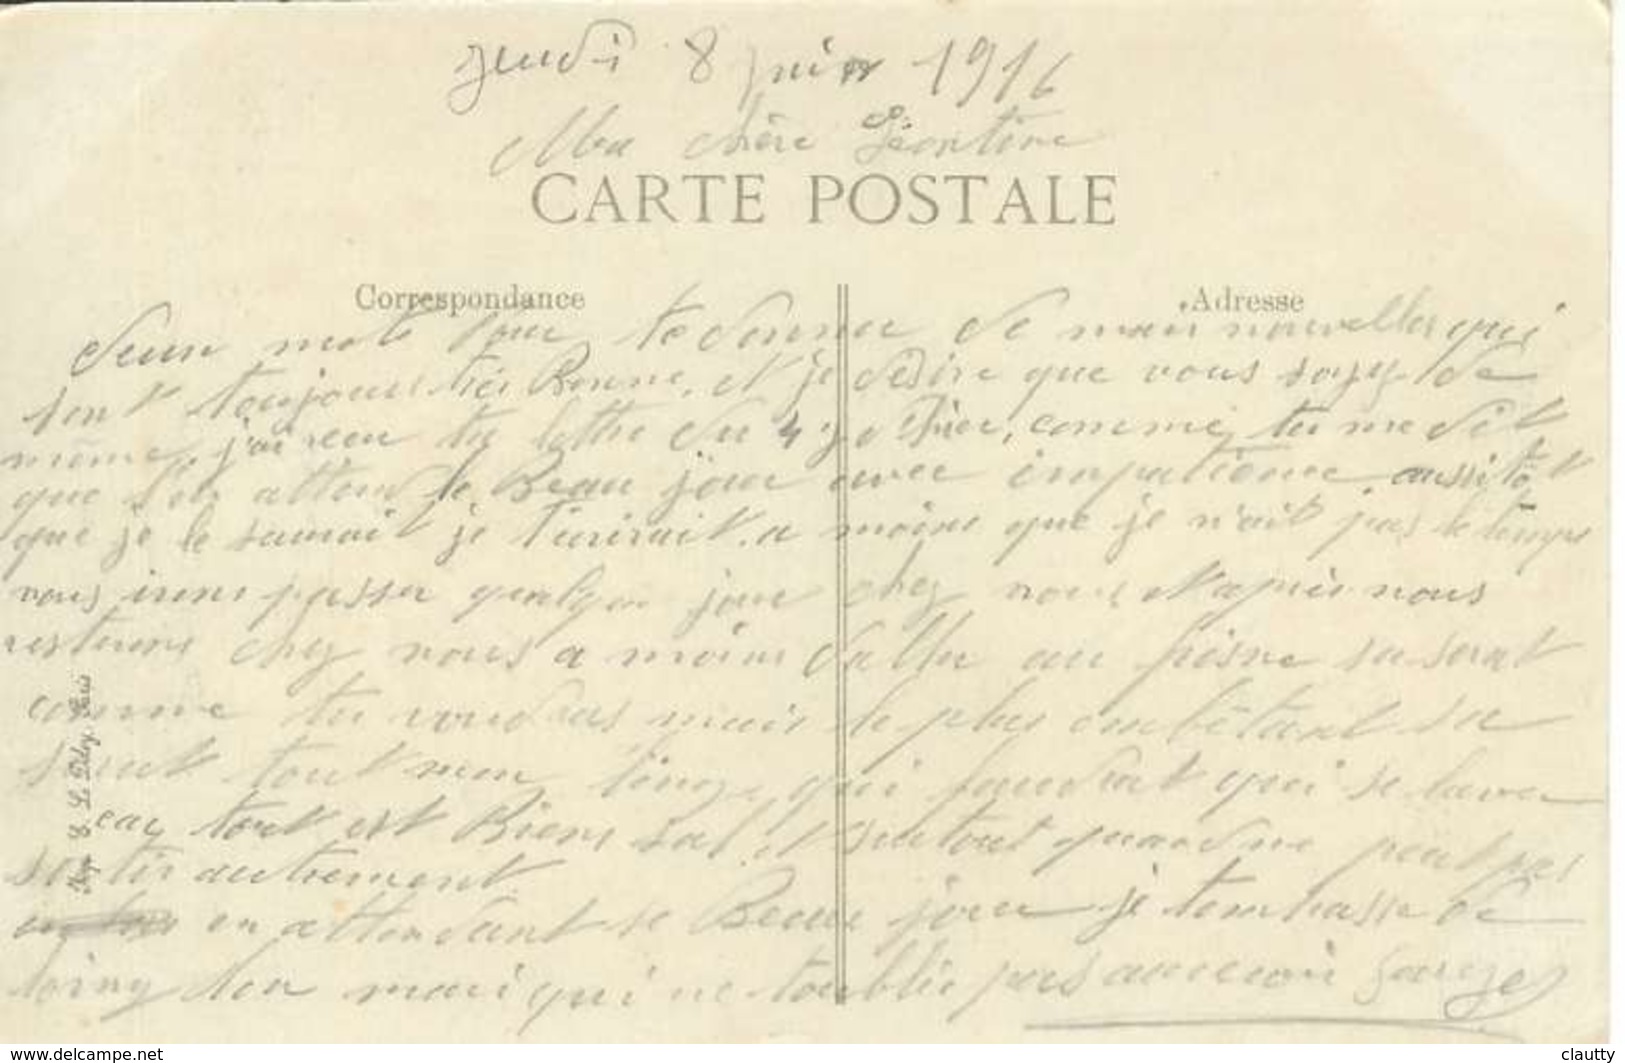 Jeudi 8 juin 1916
Ma chère Léontine
CARTE POSTALE
Correspondance
Adresse
deux mots pour te donner de mais nouvelles qui
sont toujours très Bonne, et je désire que vous soyez de
même, j'ai reçu ta lettre du 4 comme tu me dit
que attend le Beau jour avec impatience, aussitôt
que je le saurait je t'écrirait. a moins que je n'ait pas le temps
nous irons passer quelque jour chez vous, et après nous
resterons chez nous a moins d'aller au sa serat
comme tu voudras mais le plus embêtant sa
serat tout mon linge qui faudrat qui se laver
car tout est Biens sal, et surtout quand ne peut pas
sortir autrement.
en attendant se Beau jour je t'embrasse de
loing ton mari qui ne t'oublie pas aurevoir
Imp. E. Le Deley, Paris
www.delcampe.net
clautty